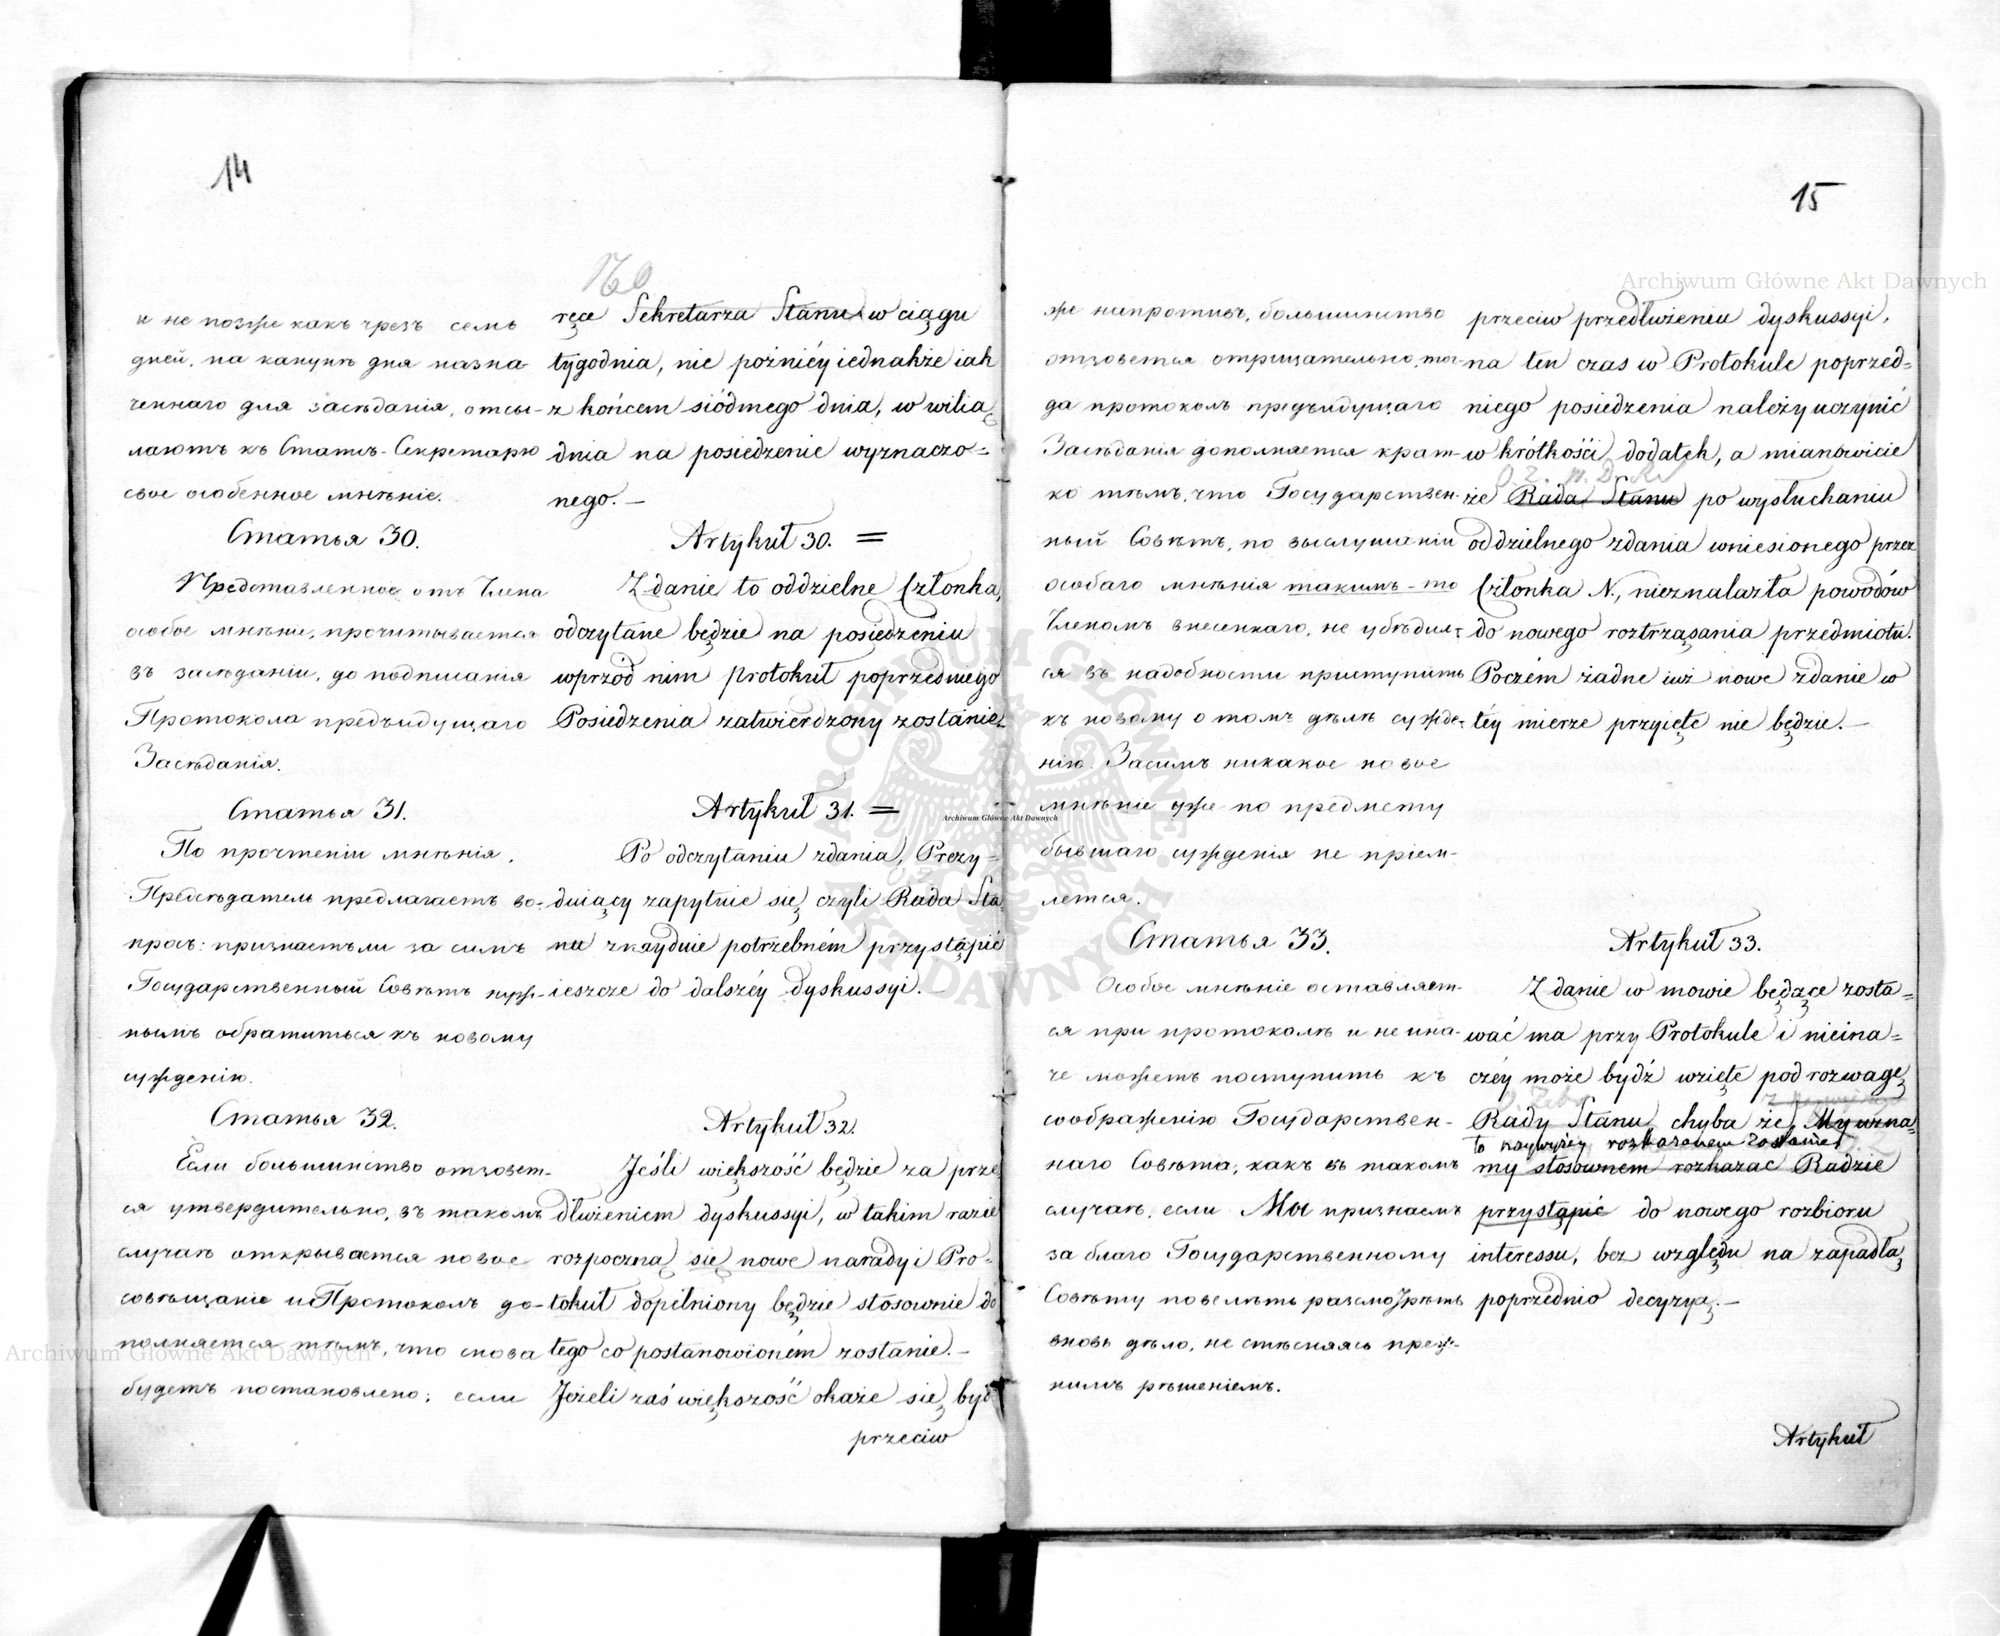 14
и не позже какъ чрезъ семь
дней, на канунѣ дня назна
ченнаго для засѣданія, отсы-
лаютъ къ Статсъ-Секретарю
свое особенное мнѣніе.
Статья 30.
Представленное отъ Члена
особое мнѣніе, прочитывается
въ засѣданіи, до подписанія
Протокола предъидущаго
Засѣданія.
Статья 31.
По прочтеніи мнѣнія,
Предсѣдатель предлагаетъ во-
просъ: признаетъ ли за симъ
Государственный Совѣтъ нуж-
нымъ обратиться къ новому
сужденію.
Статья 32.
Если большинство отзовет-
ся утвердительно, въ такомъ
случаѣ открывается новое
совѣщаніе и Протоколъ до-
полняется тѣмъ, что снова
будетъ постановлено; если
ręce Sekretarza Stanu w ciągu
tygodnia, nie poźniéy iednakże iak
z końcem siódmego dnia, w wilią
dnia na posiedzenie wyznaczo=
nego. —
Artykuł 30. =
Zdanie to oddzielne Członka,
odczytane będzie na posiedzeniu
wprzód nim protokuł poprzedniego
Posiedzenia zatwierdzony zostanie.
Artykuł 31. =
Po odczytaniu zdania, Prezy=
duiący zapytnie się, czyli Rada Sta-
nu znayduie potrzebném przystąpić
ieszcze do dalszéy dyskussyi. —
Artykuł 32.
Jeśli większość będzie za prze
dłużeniem dyskussyi, w takim razie
rozpoczną się nowe narady i Pro-
tokuł dopełniony będzie stosownie do
tego co postanowioném zostanie. —
Jeżeli zaś większość okaże się bydź
przeciw
15
же напротивъ, большинство
отзовется отрицательно, тог-
да протоколъ предъидущаго
Засѣданія дополняется крат-
ко тѣмъ, что Государствен-
ный Совѣтъ, по выслушаніи
особаго мнѣнія такимъ-то
Членомъ внесеннаго, не убѣдил-
ся въ надобности приступить
къ новому о томъ дѣлѣ сужде-
нію. Засимъ никакое новое
мнѣніе уже по предмету
бывшаго сужденія не пріем-
лется.
Статья 33.
Особое мнѣніе оставляет-
ся при протоколѣ и не ина-
че можетъ поступить къ
соображенію Государствен-
наго Совѣта, какъ въ такомъ
случаѣ, если Мы признаемъ
за благо Государственному
Совѣту повелѣть разсмотрѣть
вновь дѣло, не стѣсняясь преж-
нимъ рѣшеніемъ.
przeciw przedłużeniu dyskussyi,
na ten czas w Protokule poprzed=
niego posiedzenia należy uczynić
w krótkości dodatek, a mianowicie
że Rada Stanu po wysłuchaniu
oddzielnego zdania wniesionego przez
Członka N., nieznalazła powodów
do nowego roztrząsania przedmiotu.
Poczém żadne iuż nowe zdanie w
téy mierze przyięte nie będzie. —
Artykuł 33.
Zdanie w mowie będące zosta=
wać ma przy Protokule i nieina=
czéy może bydź wzięte pod rozwagę
Rady Stanu, chyba że, My uzna=
to naywyższy rozkazanem zostanie
my stosownem rozkazać Radzie
przystąpić do nowego rozbioru
interessu, bez względu na zapadłą
poprzednio decyzyą. —
Artykuł